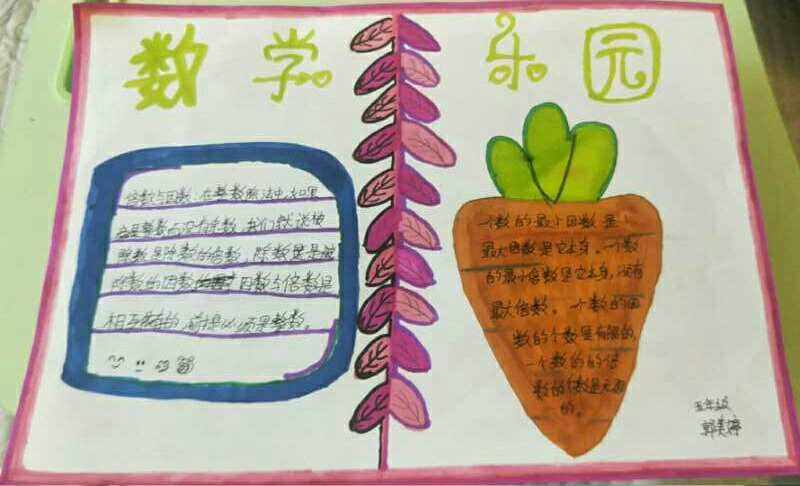 数学乐园
倍数与因数:在整数除法中,如果
商是整数而没有余数,我们就说被
除数是除数的倍数,除数是被
除数的因数 因数与倍数是
相互依存的,前提必须是整数。
一个数的最小因数是1
最大因数是它本身。一个数
的最小倍数是它本身,没有
最大倍数。一个数的因
数的个数是有限的,
一个数的的倍
数的个数是无限
的。
五年级